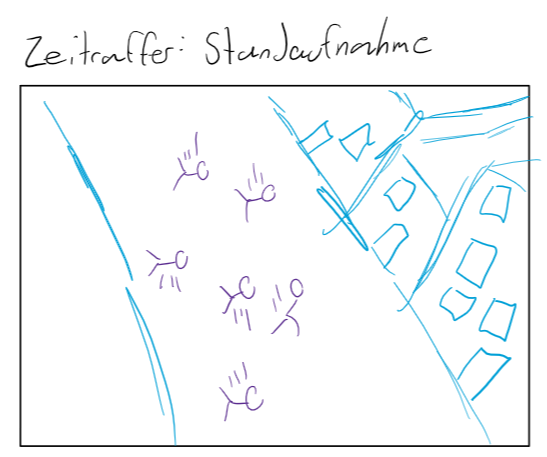 Zeitraffer: Standaufnahme